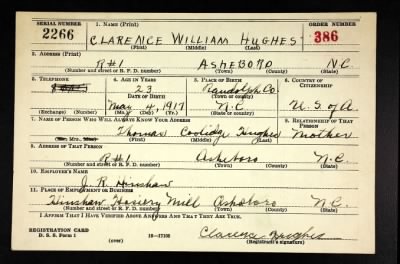 SERIAL NUMBER 1. NAME (Print) ORDER NUMBER
2266 CLARENCE WILLIAM HUGHES 386
(First) (Middle) (Last)
2. ADDRESS (Print)
R#1 ASHEBORO N.C.
(Number and street or R. F. D. number) (Town) (County) (State)
3. TELEPHONE 4. AGE IN YEARS 5. PLACE OF BIRTH 6. COUNTRY OF CITIZENSHIP
23 Randolph Co.
DATE OF BIRTH (Town or county)
May 4, 1917 N.C. U.S. of A.
(Exchange) (Number) (Mo.) (Day) (Yr.) (State or country)
7. NAME OF PERSON WHO WILL ALWAYS KNOW YOUR ADDRESS 8. RELATIONSHIP OF THAT PERSON
Thomas Coolidge Hughes Mother
(Mr., Mrs., Miss) (First) (Middle) (Last)
9. ADDRESS OF THAT PERSON
R#1 Asheboro N.C.
(Number and street or R. F. D. number) (Town) (County) (State)
10. EMPLOYER'S NAME
J. R. Hinshaw
11. PLACE OF EMPLOYMENT OR BUSINESS
Hinshaw Hosiery Mill Asheboro N.C.
(Number and street or R. F. D. number) (Town) (County) (State)
I AFFIRM THAT I HAVE VERIFIED ABOVE ANSWERS AND THAT THEY ARE TRUE.
REGISTRATION CARD
D. S. S. Form 1 (over) 16-17105 Clarence Hughes
(Registrant's signature)